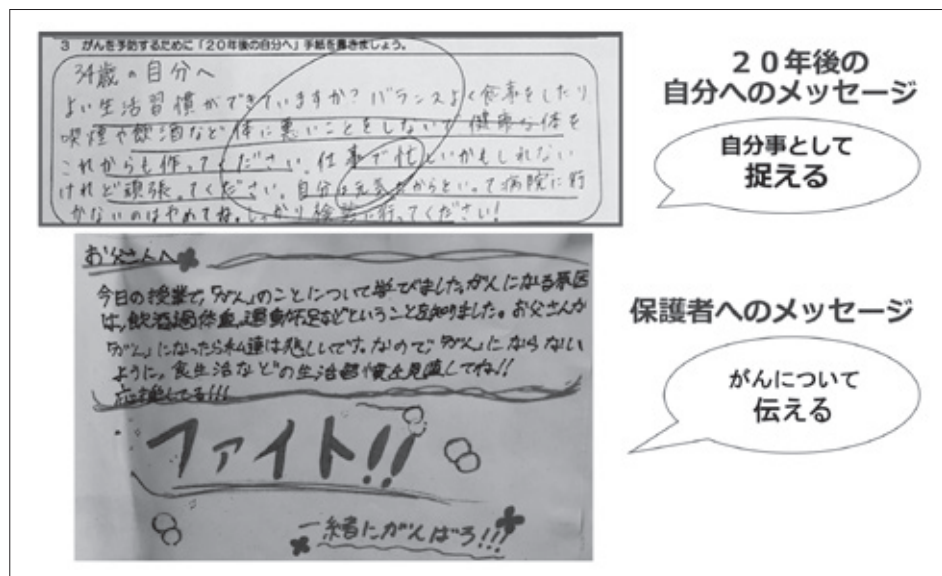 3 がんを予防するために「20年後の自分へ」手紙を書きましょう。
34歳の自分へ
よい生活習慣ができていますか?バランスよく食事をしたり
喫煙や飲酒など体に悪いことをしないで健康な体を
これからも作ってください。仕事で忙しいかもしれない
けれど頑張ってください。自分は元気だからといって病院に行
かないのはやめてね。しっかり検診に行ってください!
20年後の
自分へのメッセージ
自分事として
捉える
お父さんへ
今日の授業で、「がん」のことについて学びました。がんになる原因
は、飲酒過体重、運動不足などということを知りました。お父さんが
「がん」になったら私達は悲しいです。なので、「がん」にならない
ように、食生活などの生活習慣を見直してね!!
応援してる!!!
ファイト!!
一緒にがんばろ!!!
保護者へのメッセージ
がんについて
伝える